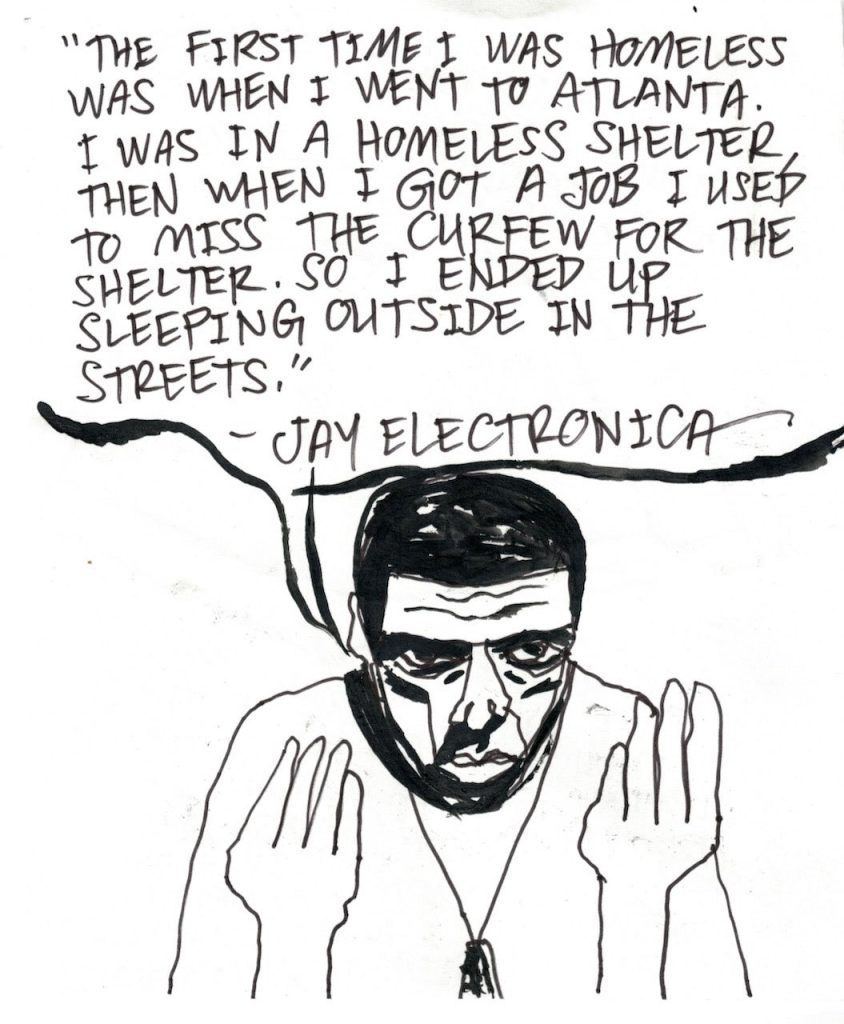 "THE FIRST TIME I WAS HOMELESS
WAS WHEN I WENT TO ATLANTA.
I WAS IN A HOMELESS SHELTER,
THEN WHEN I GOT A JOB I USED
TO MISS THE CURFEW FOR THE
SHELTER. SO I ENDED UP
SLEEPING OUTSIDE IN THE
STREETS."
- JAY ELECTRONICA